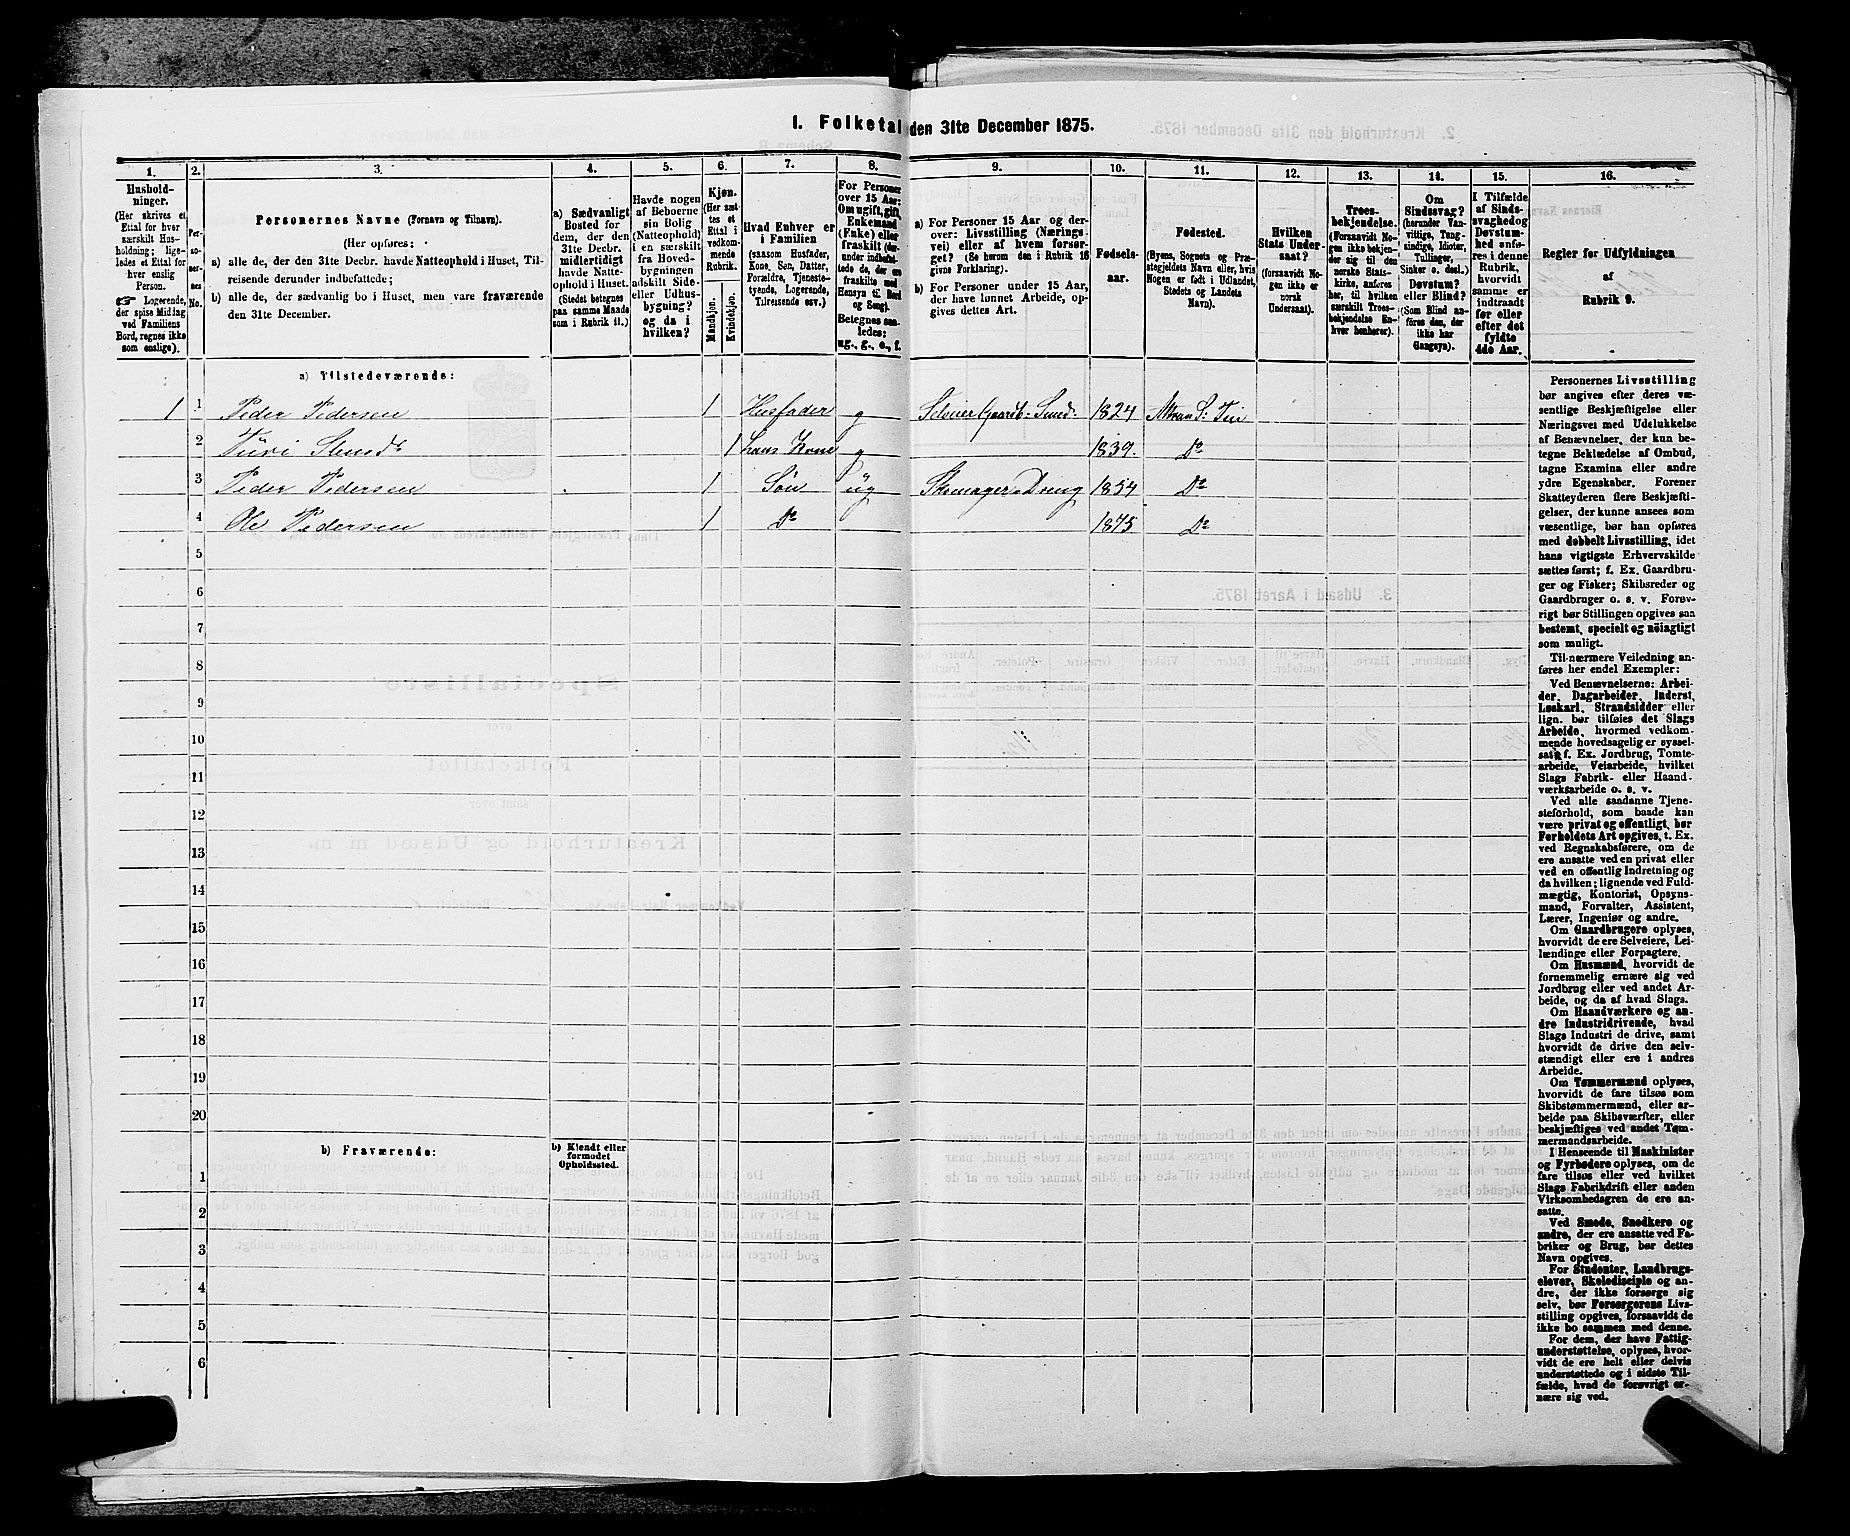 I. Folketal den 31te December 1875.
1.
2.
3.
4.
5.
6.
7.
8.
9.
10.
11.
12.
13.
14.
15.
16.
Hushold-
ninger.
(Her skrives et
Ettal for hver
særskilt Hus-
holdning; lige-
ledes et Ettal for
hver enslig
Person.
☞ Logerende,
der spise Middag
ved Familiens
Bord, regnes ikke
som enslige).
Per-
so-
ner-
nes
No.
Personernes Navne (Fornavn og Tilnavn).
(Her opføres:
a) alle de, der den 31te Decbr. havde Natteophold i Huset, Til-
reisende derunder indbefattede;
b) alle de, der sædvanlig bo i Huset, men vare fraværende
den 31te December.
a) Sædvanligt
Bosted for
dem, der den
31te Decbr.
midlertidigt
havde Natte-
ophold i Huset.
(Stedet betegnes
paa samme Maade
som i Rubrik 11.)
Havde nogen
af Beboerne
sin Bolig
(Natteophold)
i en særskilt
fra Hoved-
bygningen
adskilt Side-
eller Udhus-
bygning?
og da i
hvilken?
Kjøn.
(Her sæt-
tes et
Ettal i
vedkom-
mende
Rubrik.
Mandkjøn.
Kvindekjøn.
Hvad Enhver er
i Familien
(saasom Husfader,
Kone, Søn, Datter,
Forældre, Tjeneste-
tyende, Logerende,
Tilreisende osv.)
For Personer
over 15 Aar:
Om ugift, gift,
Enkemand
(Enke) eller
fraskilt (der-
under indbefat-
tede de, der ere
fraskilte med
Hensyn til Bord
og Seng).
Betegnes saa-
ledes:
ug., g., e., f.
a) For Personer 15 Aar og der-
over: Livsstilling (Nærings-
vei) eller af hvem forsør-
get? (Se herom den i Rubrik 16
givne Forklaring).
b) For Personer under 15 Aar,
der have lønnet Arbeide, op-
gives dettes Art.
Fødsels-
aar.
Fødested.
(Byens, Sognets og Præ-
stegjeldets Navn eller, hvis
Nogen er født i Udlandet,
Stedets og Landets
Navn).
Hvilken
Stats Under-
saat?
(forsaavidt No-
gen ikke er
norsk
Undersaat).
Troes-
bekjendelse.
(Forsaavidt No-
gen ikke bekjen-
der sig til den
norske Stats-
kirke, anføres
her, til hvilken
særskilt Troes-
bekjendelse En-
hver henhører).
Om
Sindssvag?
(herunder Van-
vittige, Tung-
sindige, Idioter,
Tullinger,
Sinker o. desl.)
Døvstum?
eller Blind?
(Som Blind an-
føres den, der
ikke har
Gangsyn).
I Tilfælde
af Sinds-
svaghed og
Døvstum-
hed anfø-
res i denne
Rubrik,
hvorvidt
samme er
indtraadt
før eller
efter det
fyldte
4de Aar.
Regler for Udfyldningen
af
Rubrik 9.
a) Tilstedeværende:
1 1 Peder Pedersen 1 Husfader g Selveier Gaardb: Smed. 1824 S: Tin
2 1 hans Kone g 1839. Do
3 Peder Pedersen 1 Søn ug Skomager Dreng 1854 Do
4 Ole Pedersen 1 Do 1875 Do
5
6
7
8
9
10
11
12
13
14
15
16
17
18
19
20
b) Fraværende:
b) Kjendt eller
formodet
Opholdssted.
1
2
3
4
5
6
Personernes Livsstilling
bør angives efter deres væ-
sentlige Beskjæftigelse eller
Næringsvei med Udelukkelse
af Benævnelser, der kun be-
tegne Beklædelse af Ombud,
tagne Examina eller andre
ydre Egenskaber. Forener
Skatteyderen flere Beskjæfti-
gelser, der kunne ansees som
væsentlige, bør han opføres
med dobbelt Livsstilling, idet
hans vigtigste Erhvervskilde
sættes først; f. Ex. Gaardbru-
ger og Fisker; Skibsreder og
Gaardbruger o. s. v. Forøv-
rigt bør Stillingen opgives saa
bestemt, specielt og nøiagtigt
som muligt.
Til nærmere Veiledning an-
føres her endel Exempler:
Ved Benævnelserne: Arbei-
der, Dagarbeider, Inderst,
Løskarl, Strandsidder eller
lign. bør tilføies det Slags
Arbeide, hvormed vedkom-
mende hovedsagelig er syssel-
sat; f. Ex. Jordbrug, Tomte-
arbeide, Veiarbeide, hvilket
Slags Fabrik- eller Haand-
værksarbeide o. s. v.
Ved alle saadanne Tjene-
steforhold, som baade kan
være privat og offentligt, bør
Forholdets Art opgives, t. Ex.
ved Regnskabsførere, om de
ere ansatte ved en privat eller
ved en offentlig Indretning og
da hvilken; lignende ved Fuld-
mægtig, Kontorist, Opsyns-
mand, Forvalter, Assistent,
Lærer, Ingeniør og andre.
Om Gaardbrugere oplyses,
hvorvidt de ere Selveiere, Lei-
lændinge eller Forpagtere.
Om Husmænd, hvorvidt de
fornemmelig ernære sig ved
Jordbrug eller ved andet Ar-
beide, og da af hvad Slags.
Om Haandværkere og an-
dre Industridrivende, hvad
Slags Industri de drive, samt
hvorvidt de drive den selv-
stændigt eller ere i andres
Arbeide.
Om Tømmermænd oplyses,
hvorvidt de fare tilsøs som
Skibstømmermænd, eller ar-
beide paa Skibsværfter, eller
beskjæftiges ved andet Tøm-
mermandsarbeide.
I Henseende til Maskinister
og Fyrbødere oplyses, om de
fare tilsøs eller ved hvilket
Slags Fabrikdrift eller anden
Virksomhedsgren de ere an-
satte.
Ved Smede, Snedkere og
andre, der ere ansatte ved Fa-
briker og Brug, bør dettes
Navn opgives.
For Studenter, Landbrugs-
elever, Skoledisciple og an-
dre, der ikke forsørge sig
selv, bør Forsørgerens Livs-
stilling opgives, forsaavidt de
ikke bo sammen med denne.
For dem, der have Fattig-
understøttelse, oplyses, hvor-
vidt de ere helt eller delvis
understøttede og i sidste Til-
fælde, hvad de forøvrigt er-
nære sig ved.